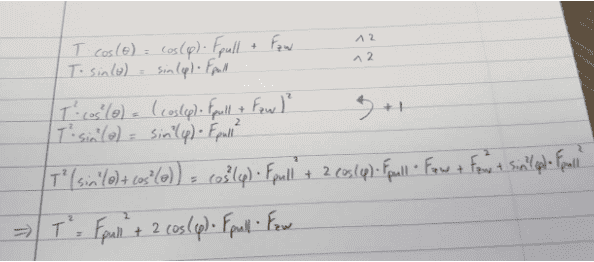 T cos(θ) = cos(φ) · Fpull + Fzw ^2
T · sin(θ) = sin(φ) · Fpull ^2
T² · cos²(θ) = (cos(φ) · Fpull + Fzw)²
T² · sin²(θ) = sin²(φ) · Fpull² +1
T² (sin²(θ) + cos²(θ)) = cos²(φ) · Fpull² + 2 cos(φ) · Fpull · Fzw + Fzw² + sin²(φ) · Fpull²
⇒ T² = Fpull² + 2 cos(φ) · Fpull · Fzw